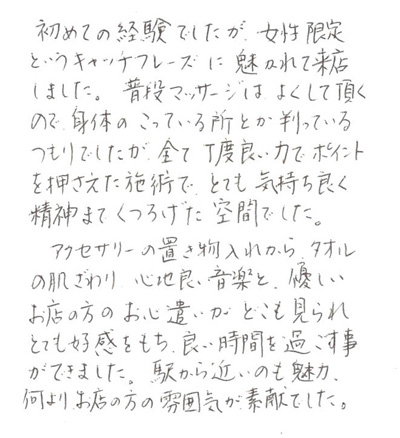 初めての経験でしたが、女性限定
というキャッチフレーズに魅かれて来店
しました。普段マッサージはよくして頂く
ので、身体のこっている所とか判っている
つもりでしたが、全て丁度良い力でポイント
を押さえた施術で、とても気持ち良く
精神までくつろげた空間でした。
アクセサリーの置き物入れから、タオル
の肌ざわり、心地良い音楽と、優しい
お店の方のお心遣いがどこも見られ
とても好感をもち、良い時間を過ごす事
ができました。駅から近いのも魅力、
何よりお店の方の雰囲気が素敵でした。